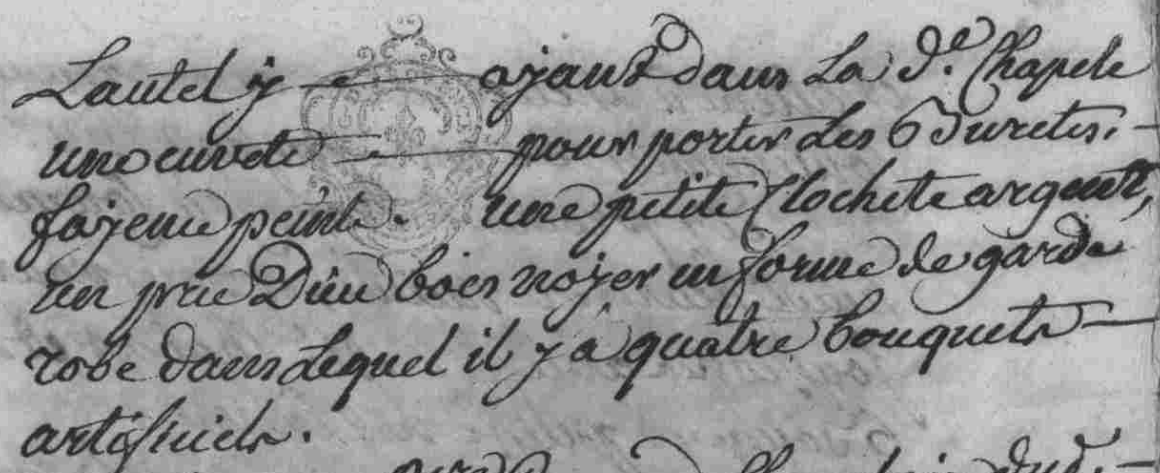 Lautel y ayant dans la d.e Chapele
une cuvete pour porter les Buretes,
fayence peinte. une petite Clochete argent,
un prie Dieu bois noyer en forme de garde
robe dans lequel il y a quatre bouquets
artificiels.